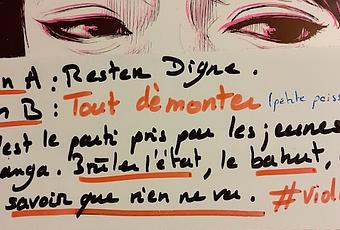 n A : Rester Digne.
n B : Tout dèmonter (petite poiss
'est le parti pris par les jeunes
anga. Brûler l'état, le bahut,
savoir que rien ne va. #vid